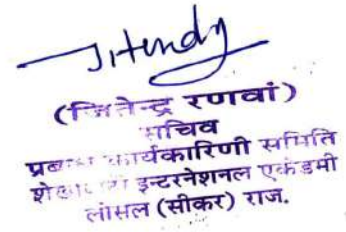 Jitendy
(जितेन्द्र रणवां)
सचिव
प्रबन्ध कार्यकारिणी समिति
इन्टरनेशनल एकेडमी
लोसल (सीकर) राज.